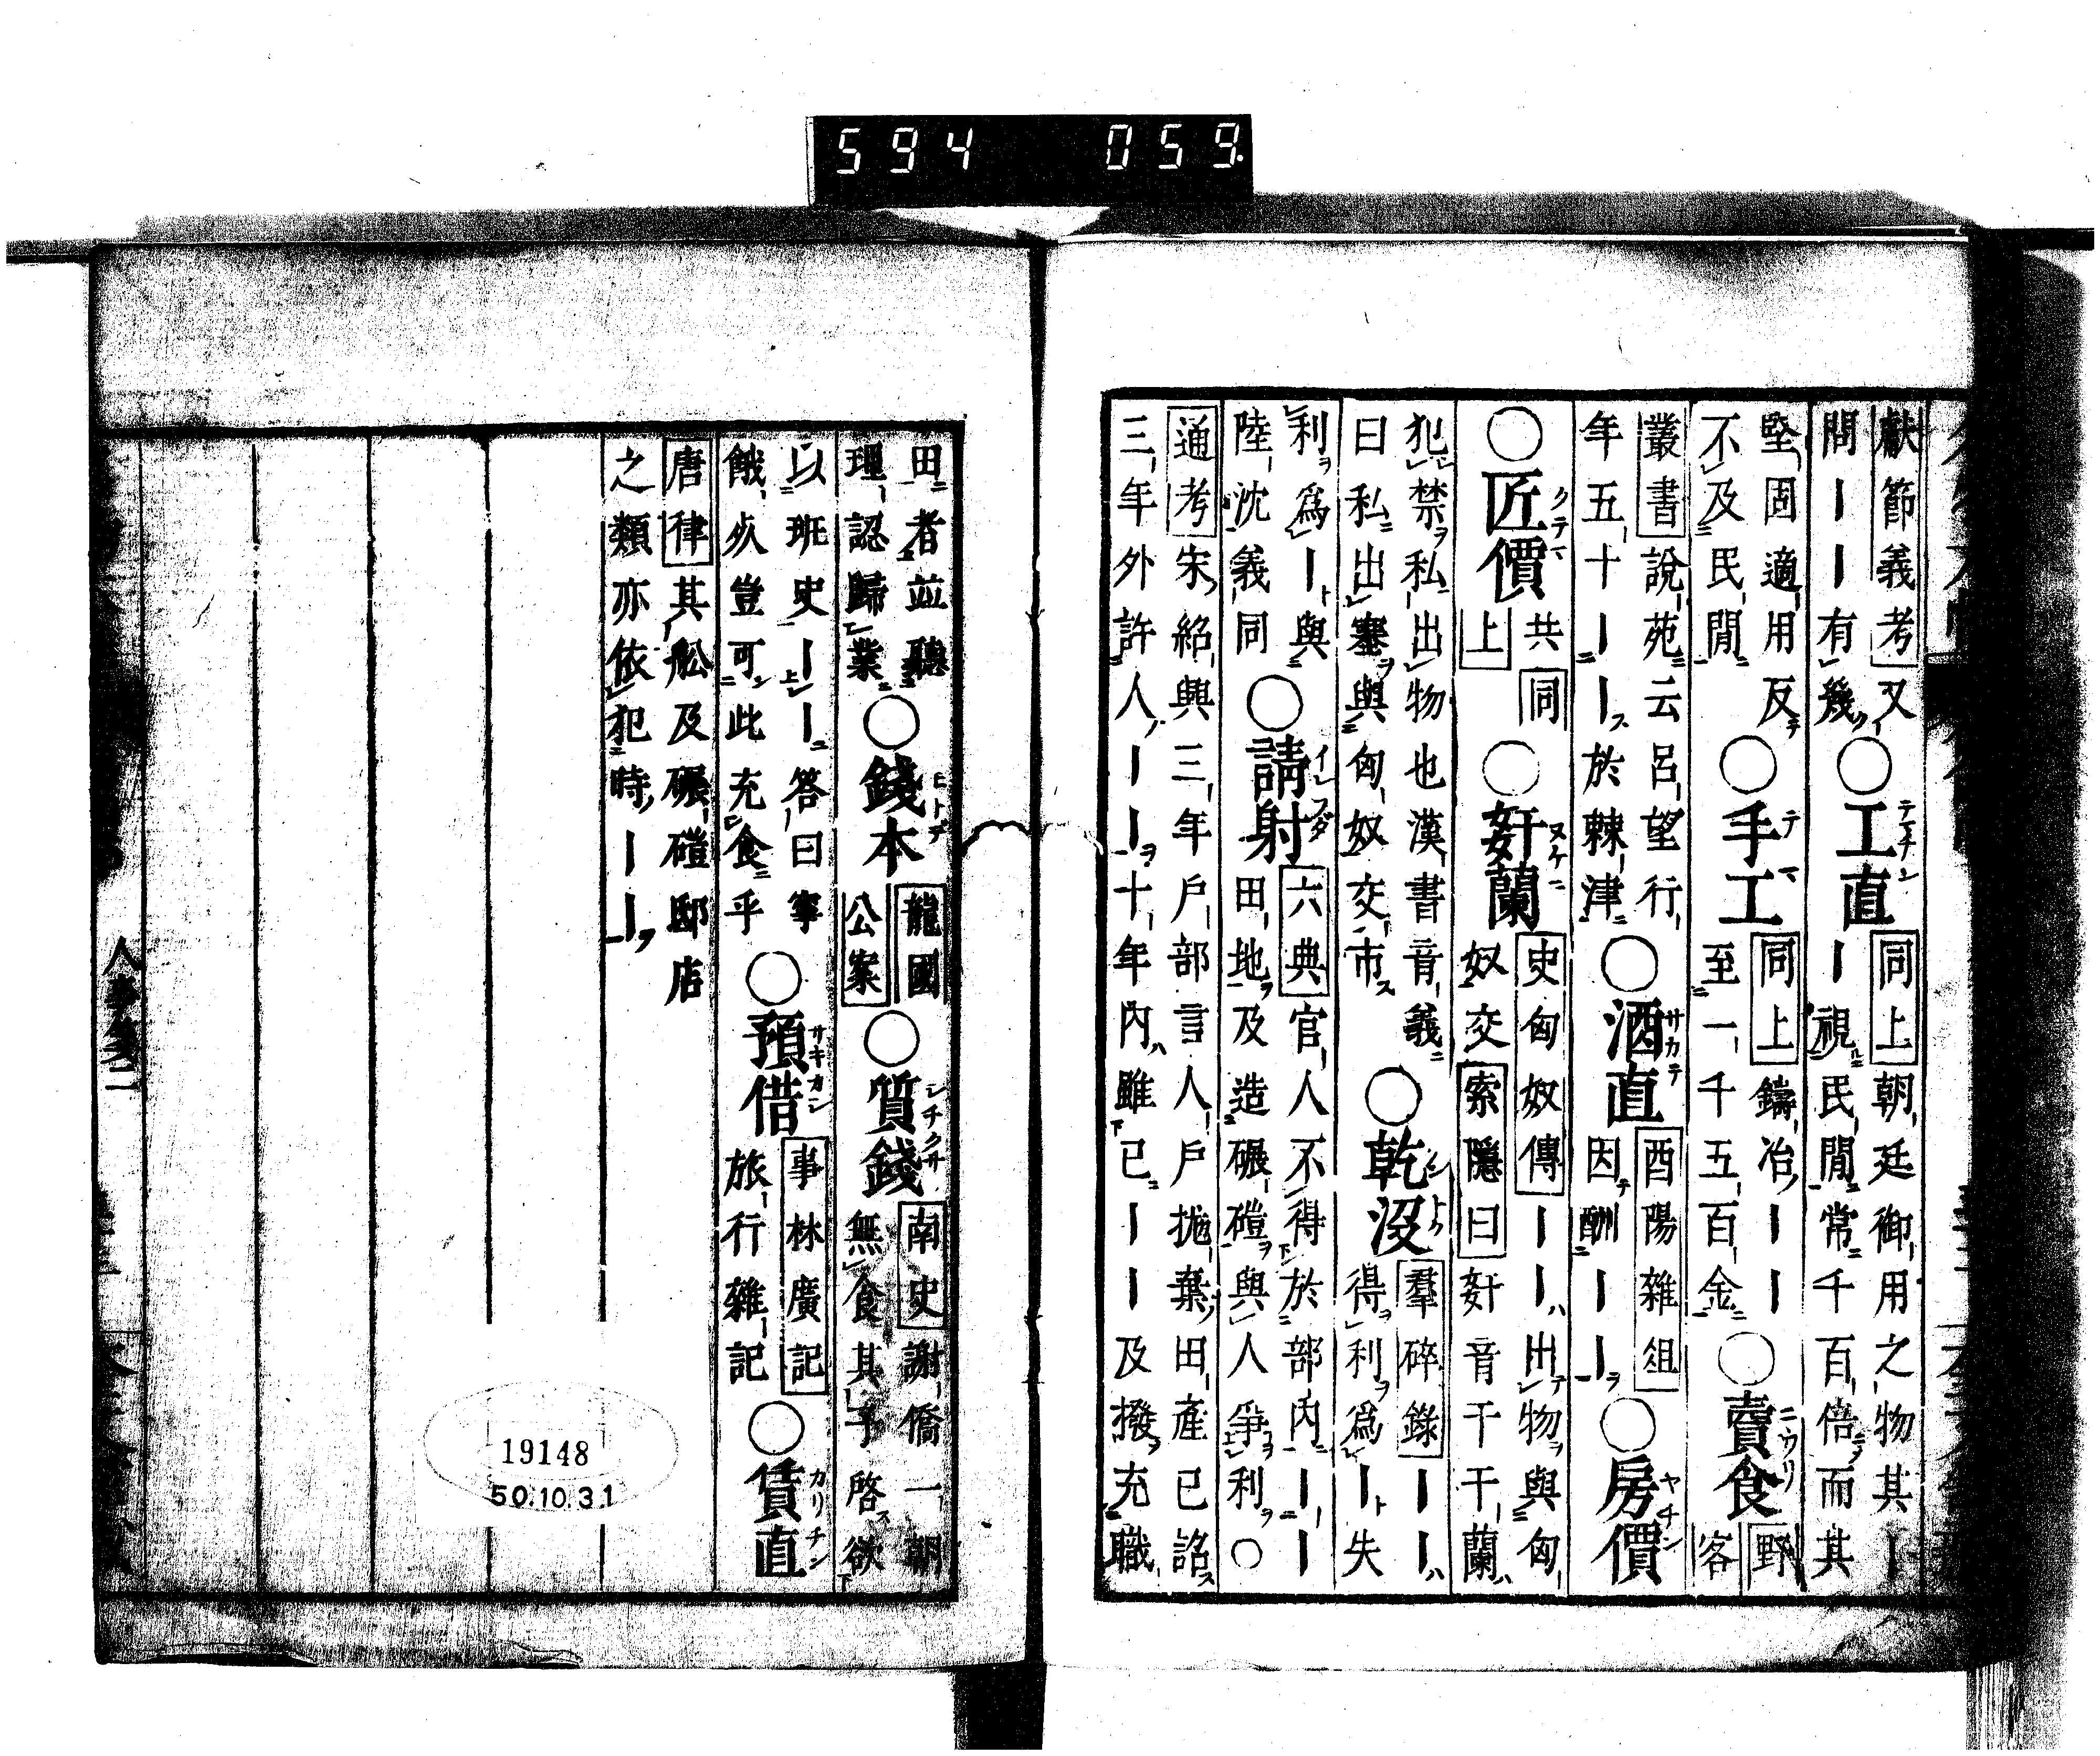 594 059
獻節義考又
問〡〡有幾
○工直
テマチン
同上朝廷御用之物其〡
〡視民間常千百倍而其
堅固適用反
不及民間
○手工
テマ
同上鑄冶〡〡
至一千五百金
○賣食
ニウリ
野
客
叢書說苑云呂望行
年五十〡〡於棘津
○酒直
サカテ
酉陽雜俎
因酬〡〡
○房價
ヤチン
○匠價
クテマ
共同
上
○奸蘭
ヌケニ
史匈奴傳〡〡出物與匈
奴交索隱曰奸音干干蘭
犯禁私出物也漢書音義
曰私出塞與匈奴交市
○乾沒
シトク
羣碎錄〡〡
得利爲〡失
利爲〡與
陸沈義同
○請射
六典官人不得於部內〡〡
田地及造碾磑與人爭利○
通考宋紹興三年戶部言人戶拋棄田產已詔
三年外許人〡〡十年內雖已〡〡及撥充職
田者並聽
理認歸業
○錢本
龍圖
公案
○質錢
シチクサ
南史謝僑一朝
無食其子啓欲
以班史〡〡答曰寧
餓死豈可此充食乎
○預借
サキカシ
事林廣記
旅行雜記
○賃直
カリチン
唐律其船及碾磑邸店
之類亦依犯時〡〡
人事箋二
19148
50.10.31